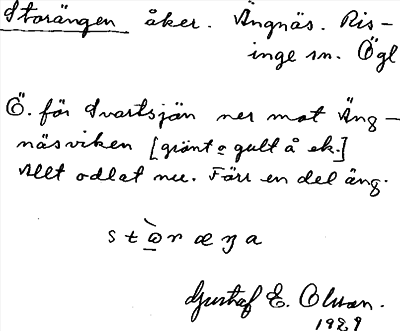 Storängen åker. Ängnäs. Ris-
inge sn. Ögl
Ö. för Svartsjön ner mot Äng-
näsviken [grönt o gult å ek.]
Allt odlat nu. Förr en del äng.
stò̱ræŋa
Gustaf E. Olsson.
1929